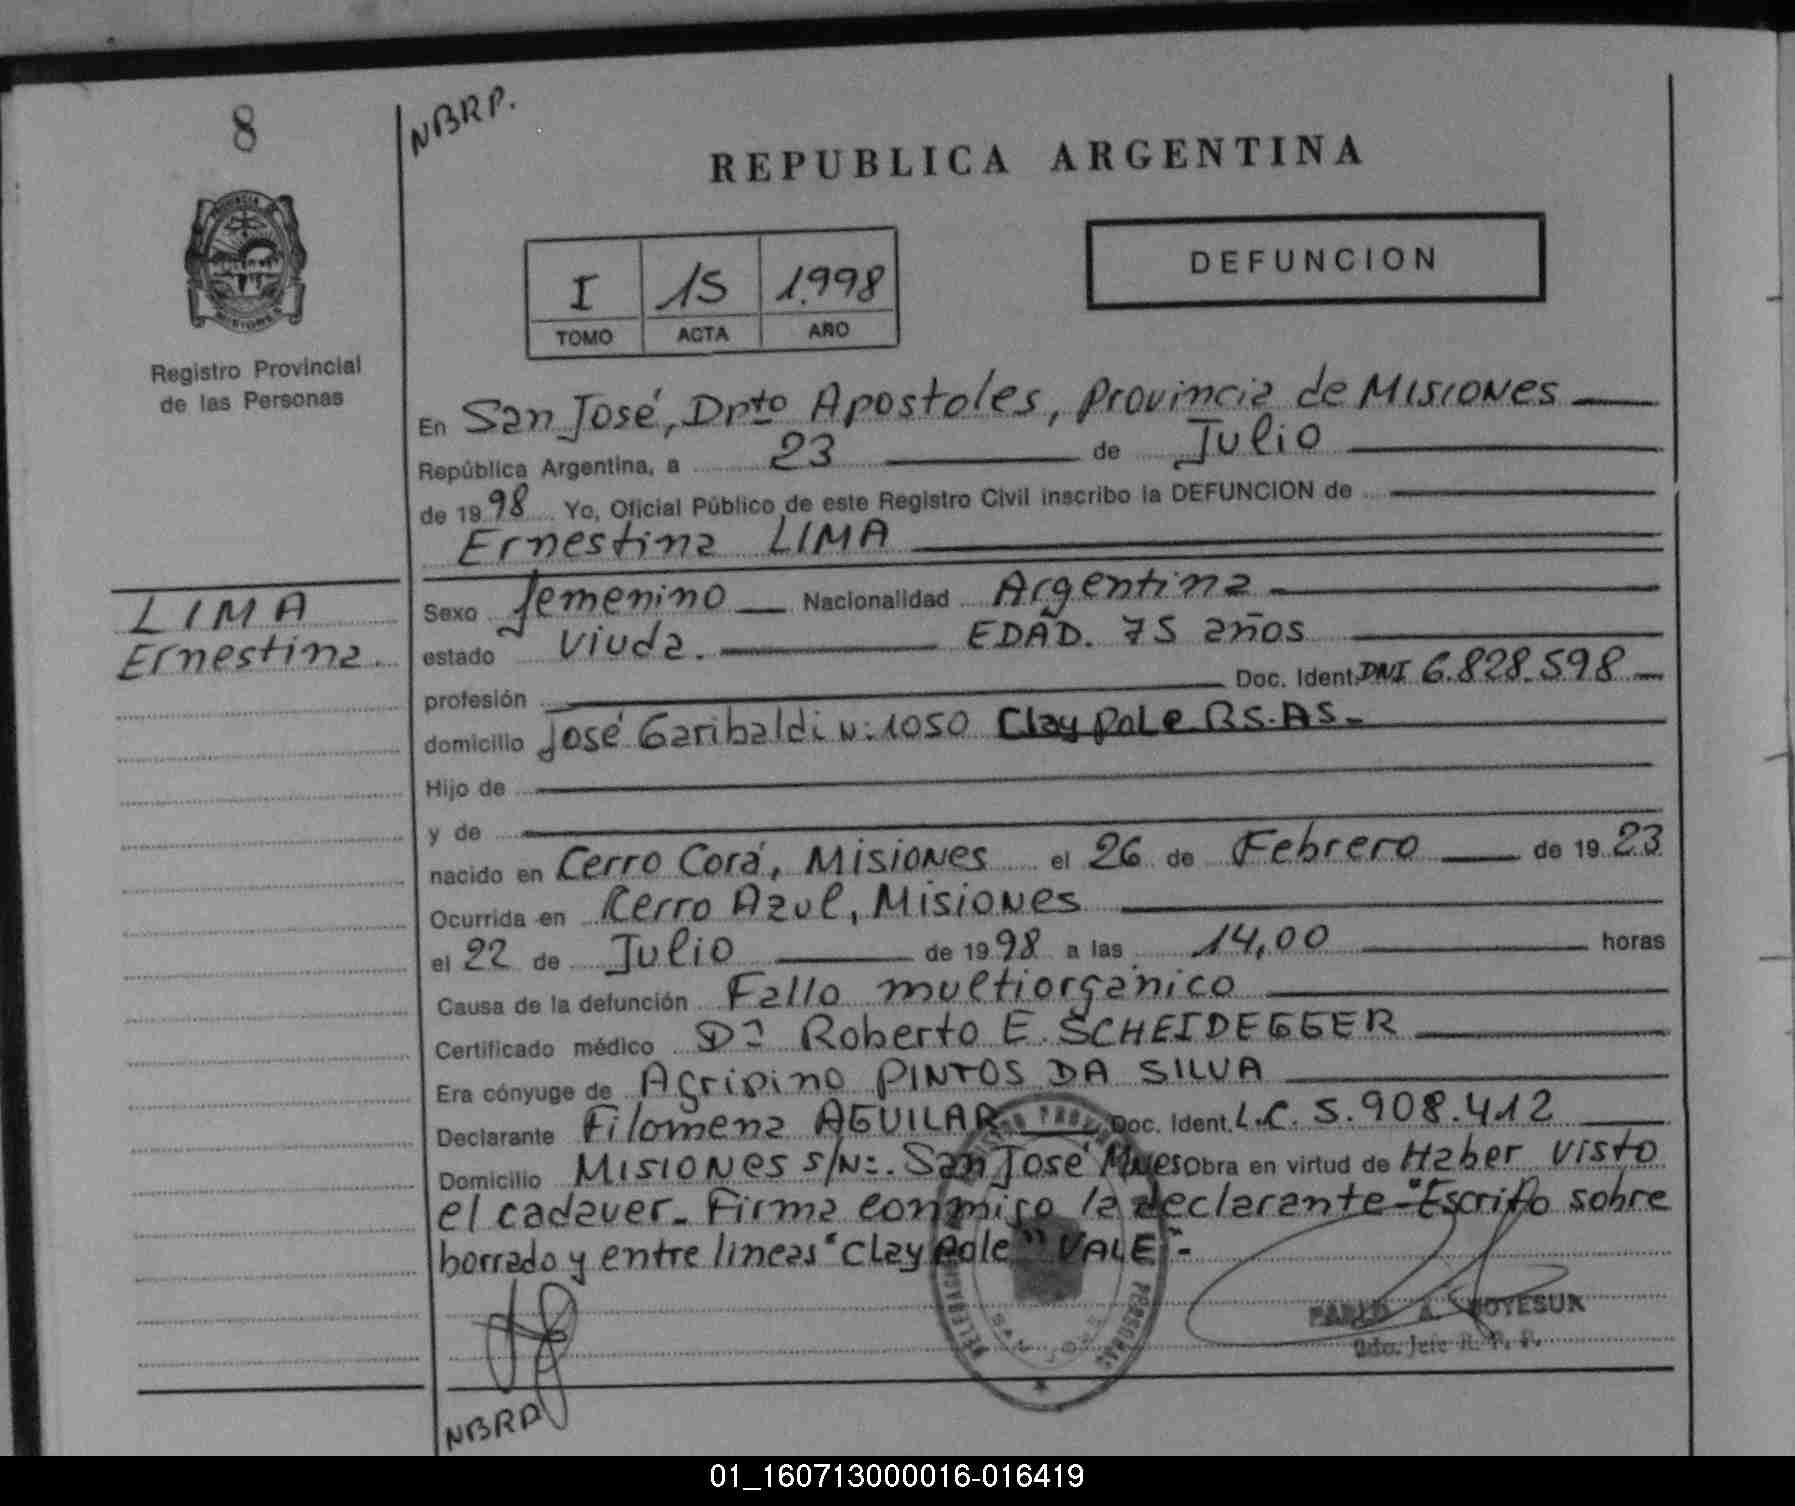 8
NBRP.
REPUBLICA ARGENTINA
PROVINCIA DE
MISIONES
Registro Provincial
de las Personas
I 15 1.998
TOMO ACTA AÑO
DEFUNCION
En San José, Dpto Apostoles, Provincia de Misiones
República Argentina, a 23 de Julio
de 1998 Yo, Oficial Público de este Registro Civil inscribo la DEFUNCION de
Ernestina LIMA
LIMA
Ernestina.
Sexo femenino Nacionalidad Argentina
estado viuda. EDAD. 75 años
profesión Doc. Ident. DNI 6.828.598
domicilio José Garibaldi N: 1050 Claypole BS.AS.-
Hijo de
y de
nacido en Cerro Corá, Misiones el 26 de Febrero de 1923
Ocurrida en Cerro Azul, Misiones
el 22 de Julio de 1998 a las 14,00 horas
Causa de la defunción Fallo multiorgánico
Certificado médico Dr Roberto E. SCHEIDEGGER
Era cónyuge de Agripino PINTOS DA SILVA
Declarante Filomena AGUILAR Doc. Ident. L.C. 5.908.412
Domicilio Misiones S/N:. San José Mnes Obra en virtud de Haber visto
el cadaver.- Firma conmigo la declarante-"Escrito sobre
borrado y entre lineas "Claypole" VALE"-
PABLO A.
2do. Jefe R. P. P.
NBRP
01_160713000016-016419